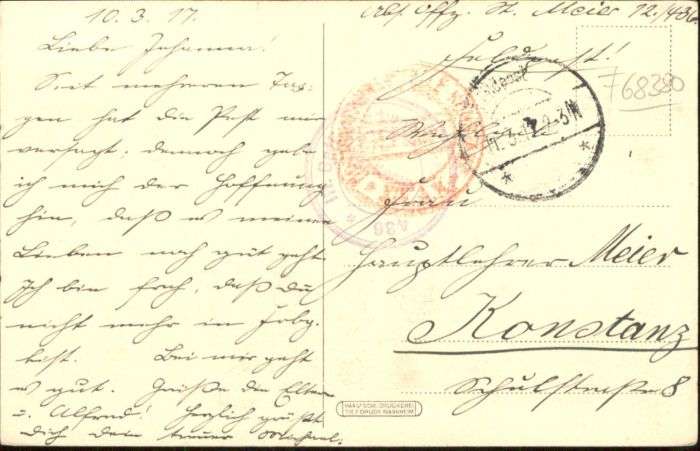 10. 3. 17.
Liebe Johanna!
Seit mehreren Ta-
gen hat die Post mir
versagt. dennoch gebe
ich mich der Hoffnung
hin, daß es meinen
Lieben noch gut geht.
Ich bin froh, daß du
nicht mehr in
bist. Bei mir geht
es gut. Grüße den Eltern
u. Alfred! Herzlich grüßt
Dich dein treuer Michael.
Abs. Offz. St. Meier 12./436
Feldpost!
768380
Frau
Hauptlehrer Meier
Konstanz
Schulstraße 8
11. 3. 17. 2-3 N